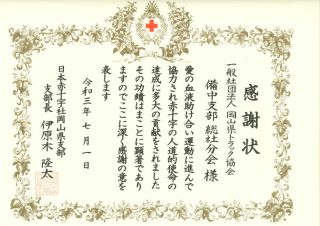 感謝状
一般社団法人 岡山県トラック協会
備中支部 総社分会 様
愛の血液助け合い運動に進んで
協力され赤十字の人道的使命の
達成に多大の貢献をされました
その功績はまことに顕著であり
ますのでここに深く感謝の意を
表します
令和三年 七月 一日
日本赤十字社岡山県支部
支部長 伊原木 隆太